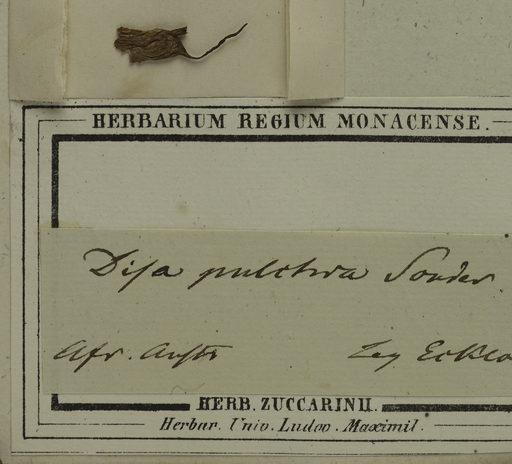 HERBARIUM REGIUM MONACENSE.
Disa pulchra Sonder.
Afr. Austr
Leg Ecklo
HERB. ZUCCARINII.
Herbar. Univ. Ludov. Maximil.